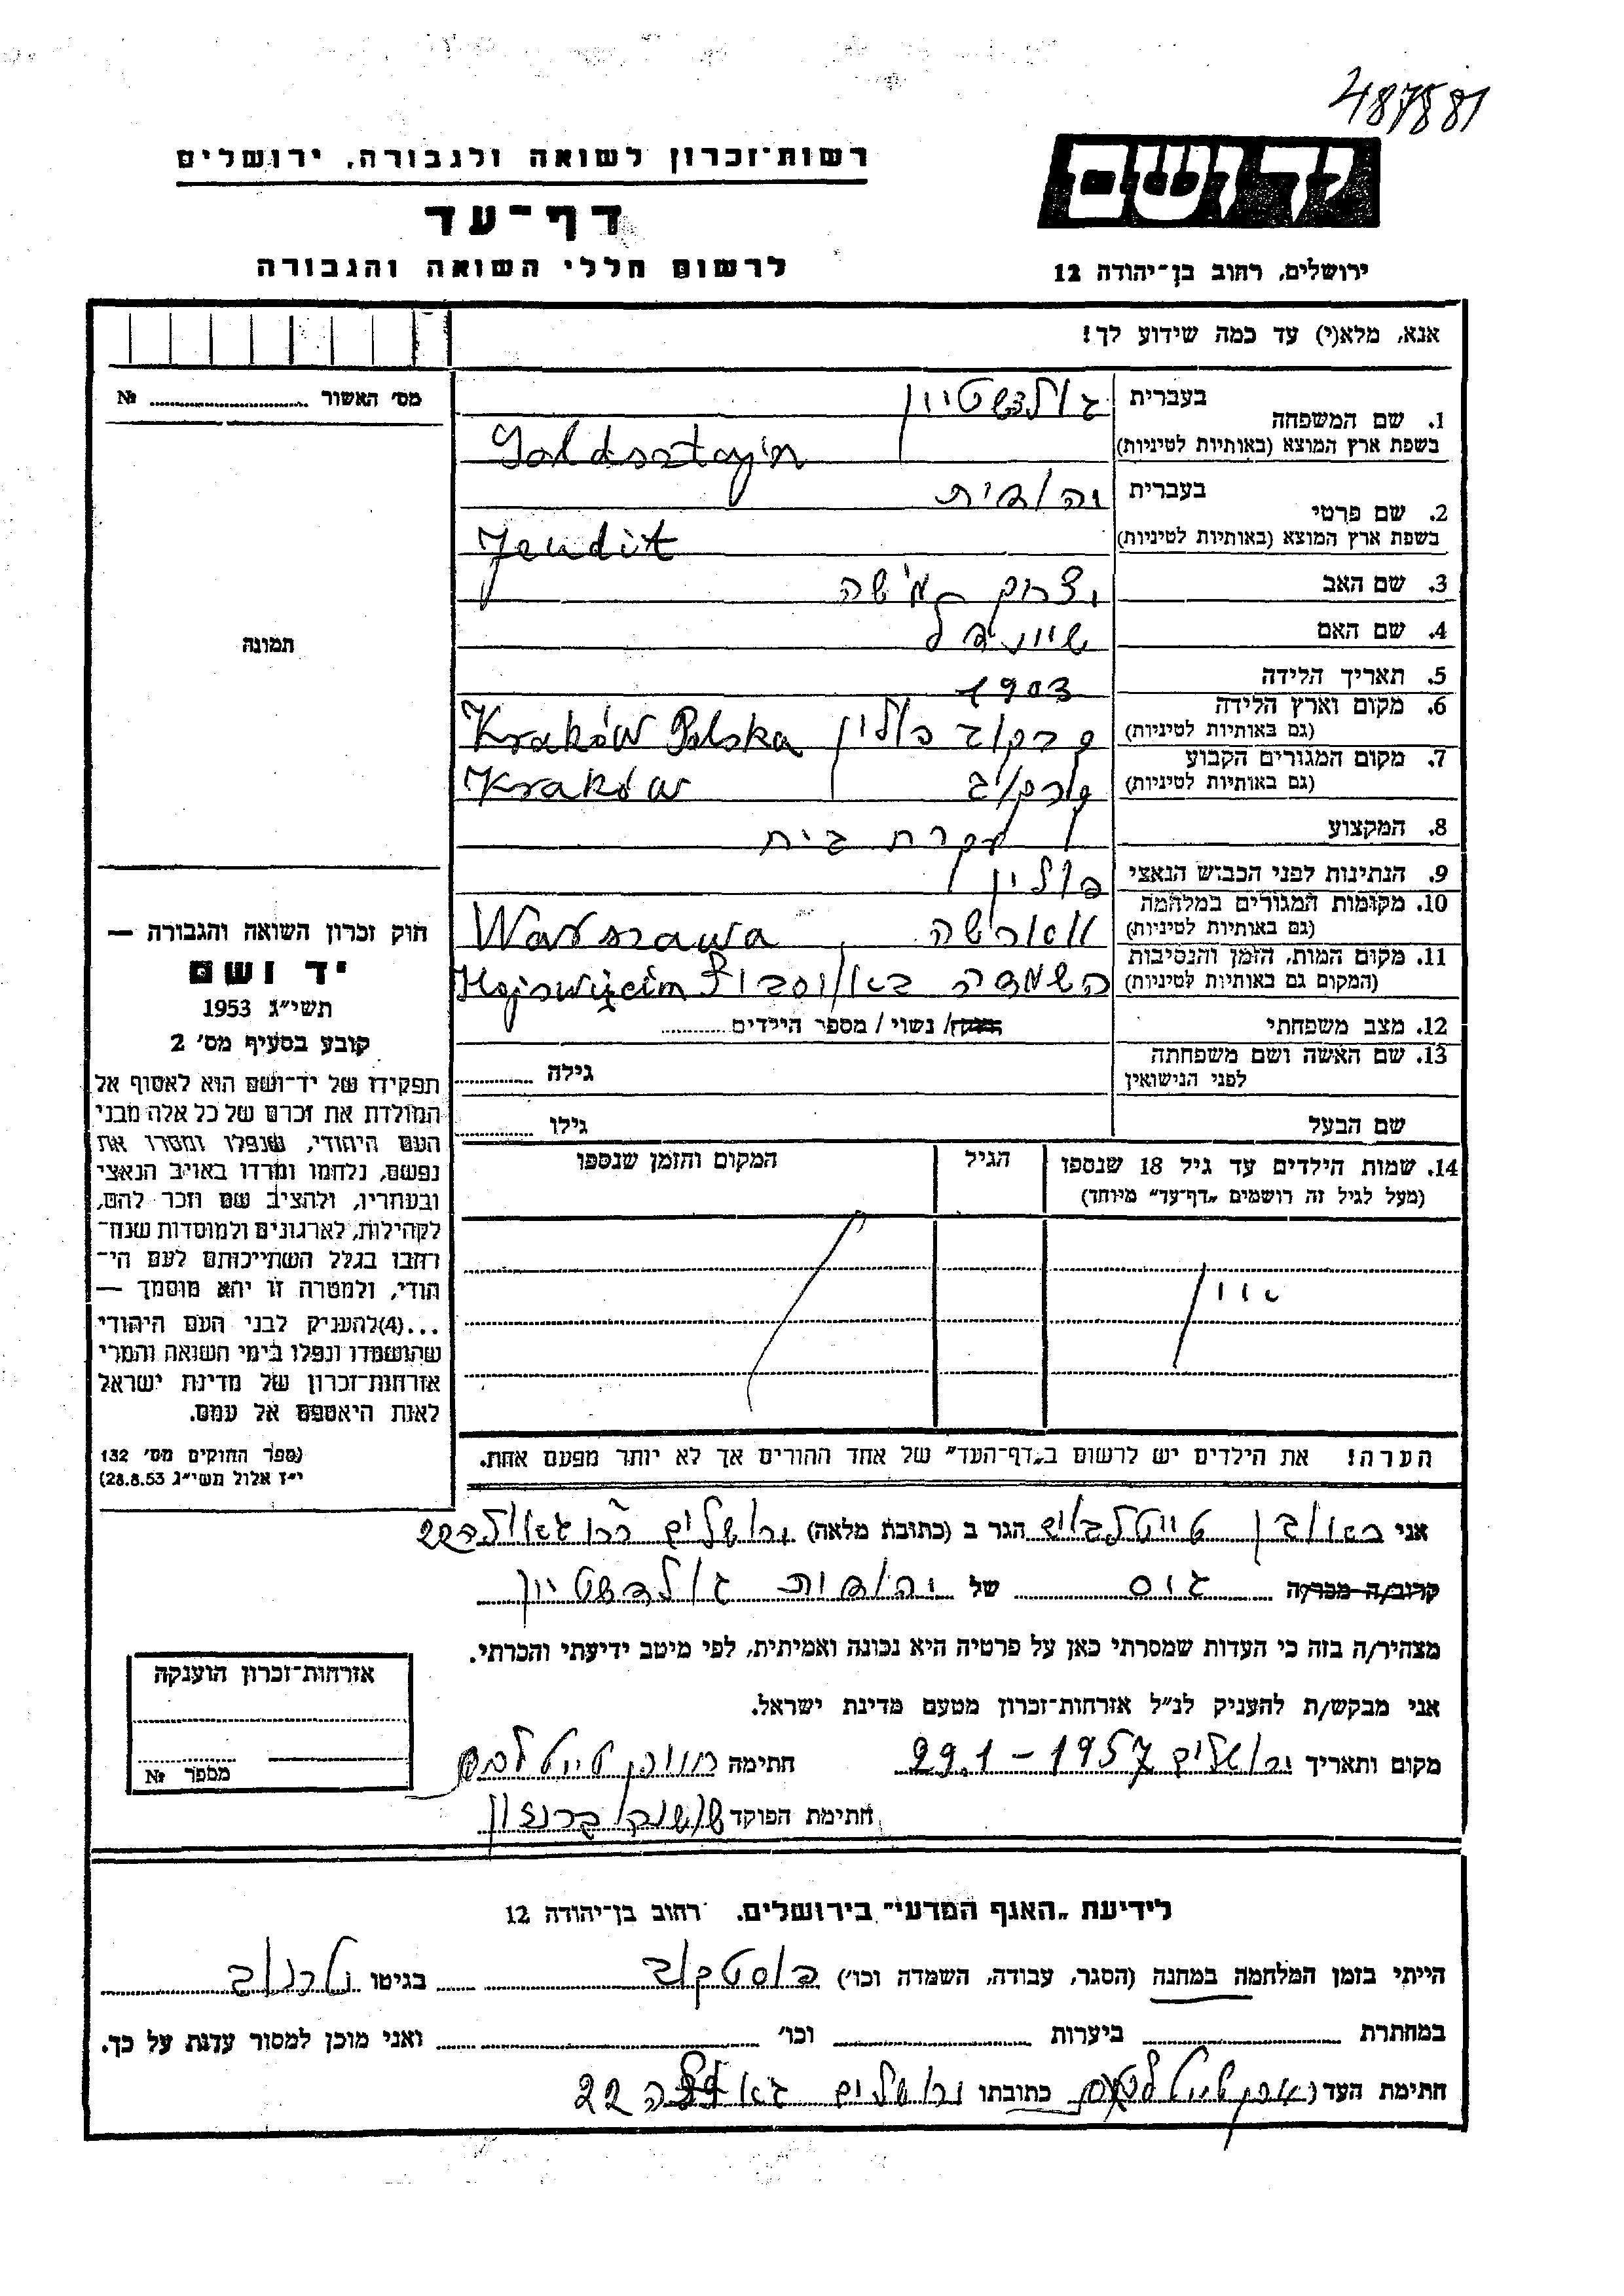 487881
יד ושם
רשות־זכרון לשואה ולגבורה, ירושלים
דף־עד
לרשום חללי השואה והגבורה
ירושלים, רחוב בן־יהודה 12
אנא, מלא(י) עד כמה שידוע לך!
מס׳ האשור № ........
1. שם המשפחה
בעברית גולדשטיין
בשפת ארץ המוצא (באותיות לטיניות) Goldsztajn
2. שם פרטי
בעברית יהודית
בשפת ארץ המוצא (באותיות לטיניות) Jeudit
3. שם האב יצחק משה
4. שם האם שיינדל
5. תאריך הלידה 1903
6. מקום וארץ הלידה (גם באותיות לטיניות) קרקוב פולין Kraków Polska
7. מקום המגורים הקבוע (גם באותיות לטיניות) קרקוב Kraków
8. המקצוע עקרת בית
9. הנתינות לפני הכבוש הנאצי פולין
10. מקומות המגורים במלחמה (גם באותיות לטיניות) ווארשה Warszawa
11. מקום המות, הזמן והנסיבות (המקום גם באותיות לטיניות) השמדה באו
12. מצב משפחתי נשוי / מספר הילדים ........
13. שם האשה ושם משפחתה לפני הנישואין גילה ........
שם הבעל גילו ........
14. שמות הילדים עד גיל 18 שנספו (מעל לגיל זה רושמים „דף־עד” מיוחד) הגיל המקום והזמן שנספו
הערה! את הילדים יש לרשום ב„דף־העד” של אחד ההורים אך לא יותר מפעם אחת.
תמונה
חוק זכרון השואה והגבורה —
יד ושם
תשי״ג 1953
קובע בסעיף מס׳ 2
תפקידו של יד־ושם הוא לאסוף אל
המולדת את זכרם של כל אלה מבני
העם היהודי, שנפלו ומסרו את
נפשם, נלחמו ומרדו באויב הנאצי
ובעוזריו, ולהציב שם וזכר להם,
לקהילות, לארגונים ולמוסדות שנח־
רבו בגלל השתייכותם לעם הי־
הודי, ולמטרה זו יהא מוסמך —
...(4)להעניק לבני העם היהודי
שהושמדו ונפלו בימי השואה והמרי
אזרחות־זכרון של מדינת ישראל
לאות היאספם אל עמם.
(ספר החוקים מס׳ 132
י״ז אלול תשי״ג 28.8.53)
אני ראובן טייטלבוים הגר ב (כתובת מלאה) ירושלים גאולה 22
קרוב/ה מכר/ה גיס של יהודית גולדשטיין
מצהיר/ה בזה כי העדות שמסרתי כאן על פרטיה היא נכונה ואמיתית, לפי מיטב ידיעתי והכרתי.
אני מבקש/ת להעניק לנ״ל אזרחות־זכרון מטעם מדינת ישראל.
מקום ותאריך ירושלים 29.1 – 1957 חתימה ראובן טייטלבוים
חתימת הפוקד
אזרחות־זכרון הוענקה
מספר №
לידיעת „האגף המדעי” בירושלים. רחוב בן־יהודה 12
הייתי בזמן המלחמה במחנה (הסגר, עבודה, השמדה וכו׳) פוסטקוב בגיטו טרנוב
במחתרת ........ ביערות ........ וכו׳ ........ ואני מוכן למסור עדות על כך.
חתימת העד ראובן טייטלבוים כתובתו ירושלים גאולה 22